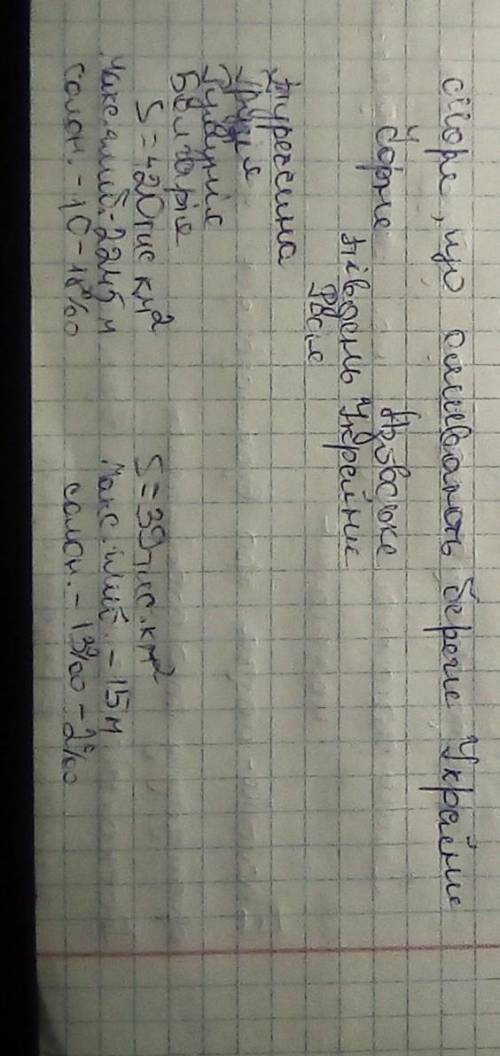 Моря, що омивають береги України
Чорне Азовське
південь України
Росія
Туреччина
Грузія
Румунія
Болгарія
S = 420 тис км² S = 39 тис. км²
Макс. глиб. - 2245 м Макс. глиб. - 15 м
солон. - 10 - 18‰ солон. - 13‰ - 2‰